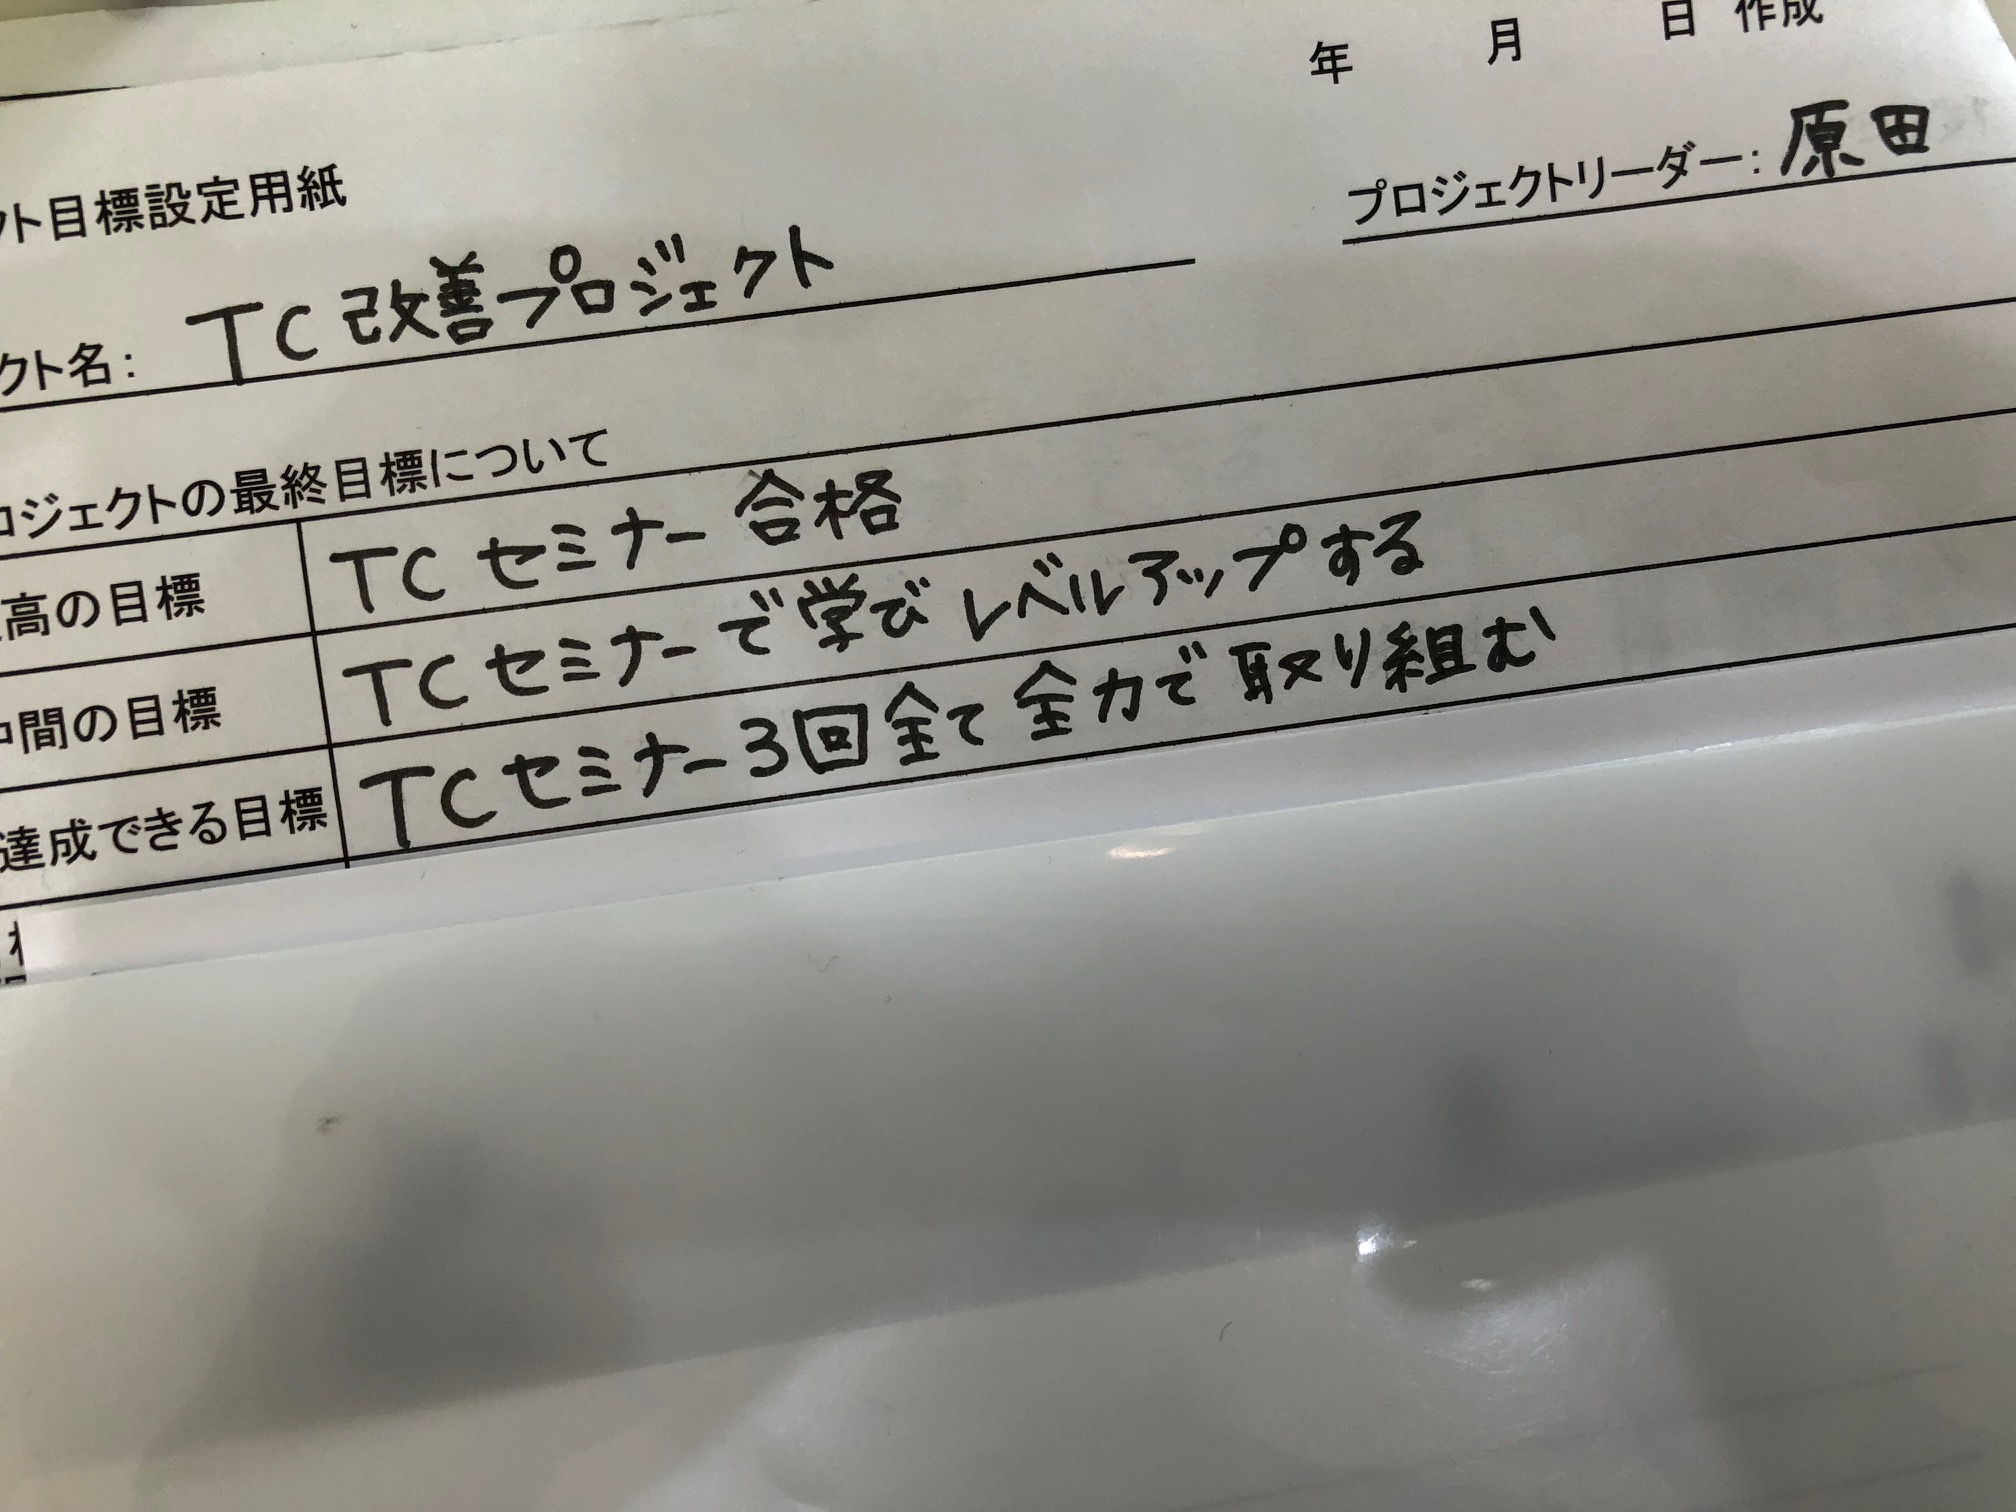 年 月 日 作成
クト目標設定用紙
プロジェクトリーダー: 原田
クト名: TC改善プロジェクト
ロジェクトの最終目標について
高の目標 TCセミナー合格
中間の目標 TCセミナーで学びレベルアップする
達成できる目標 TCセミナー3回全て全力で取り組む